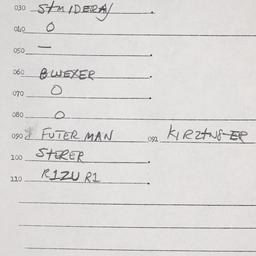 030 STMIDERA
040 O
050 —
060 BWEXER
070 O
080 O
090 FUTERMAN 091 KIRZTNSTER
100 STERER
110 RIZURI